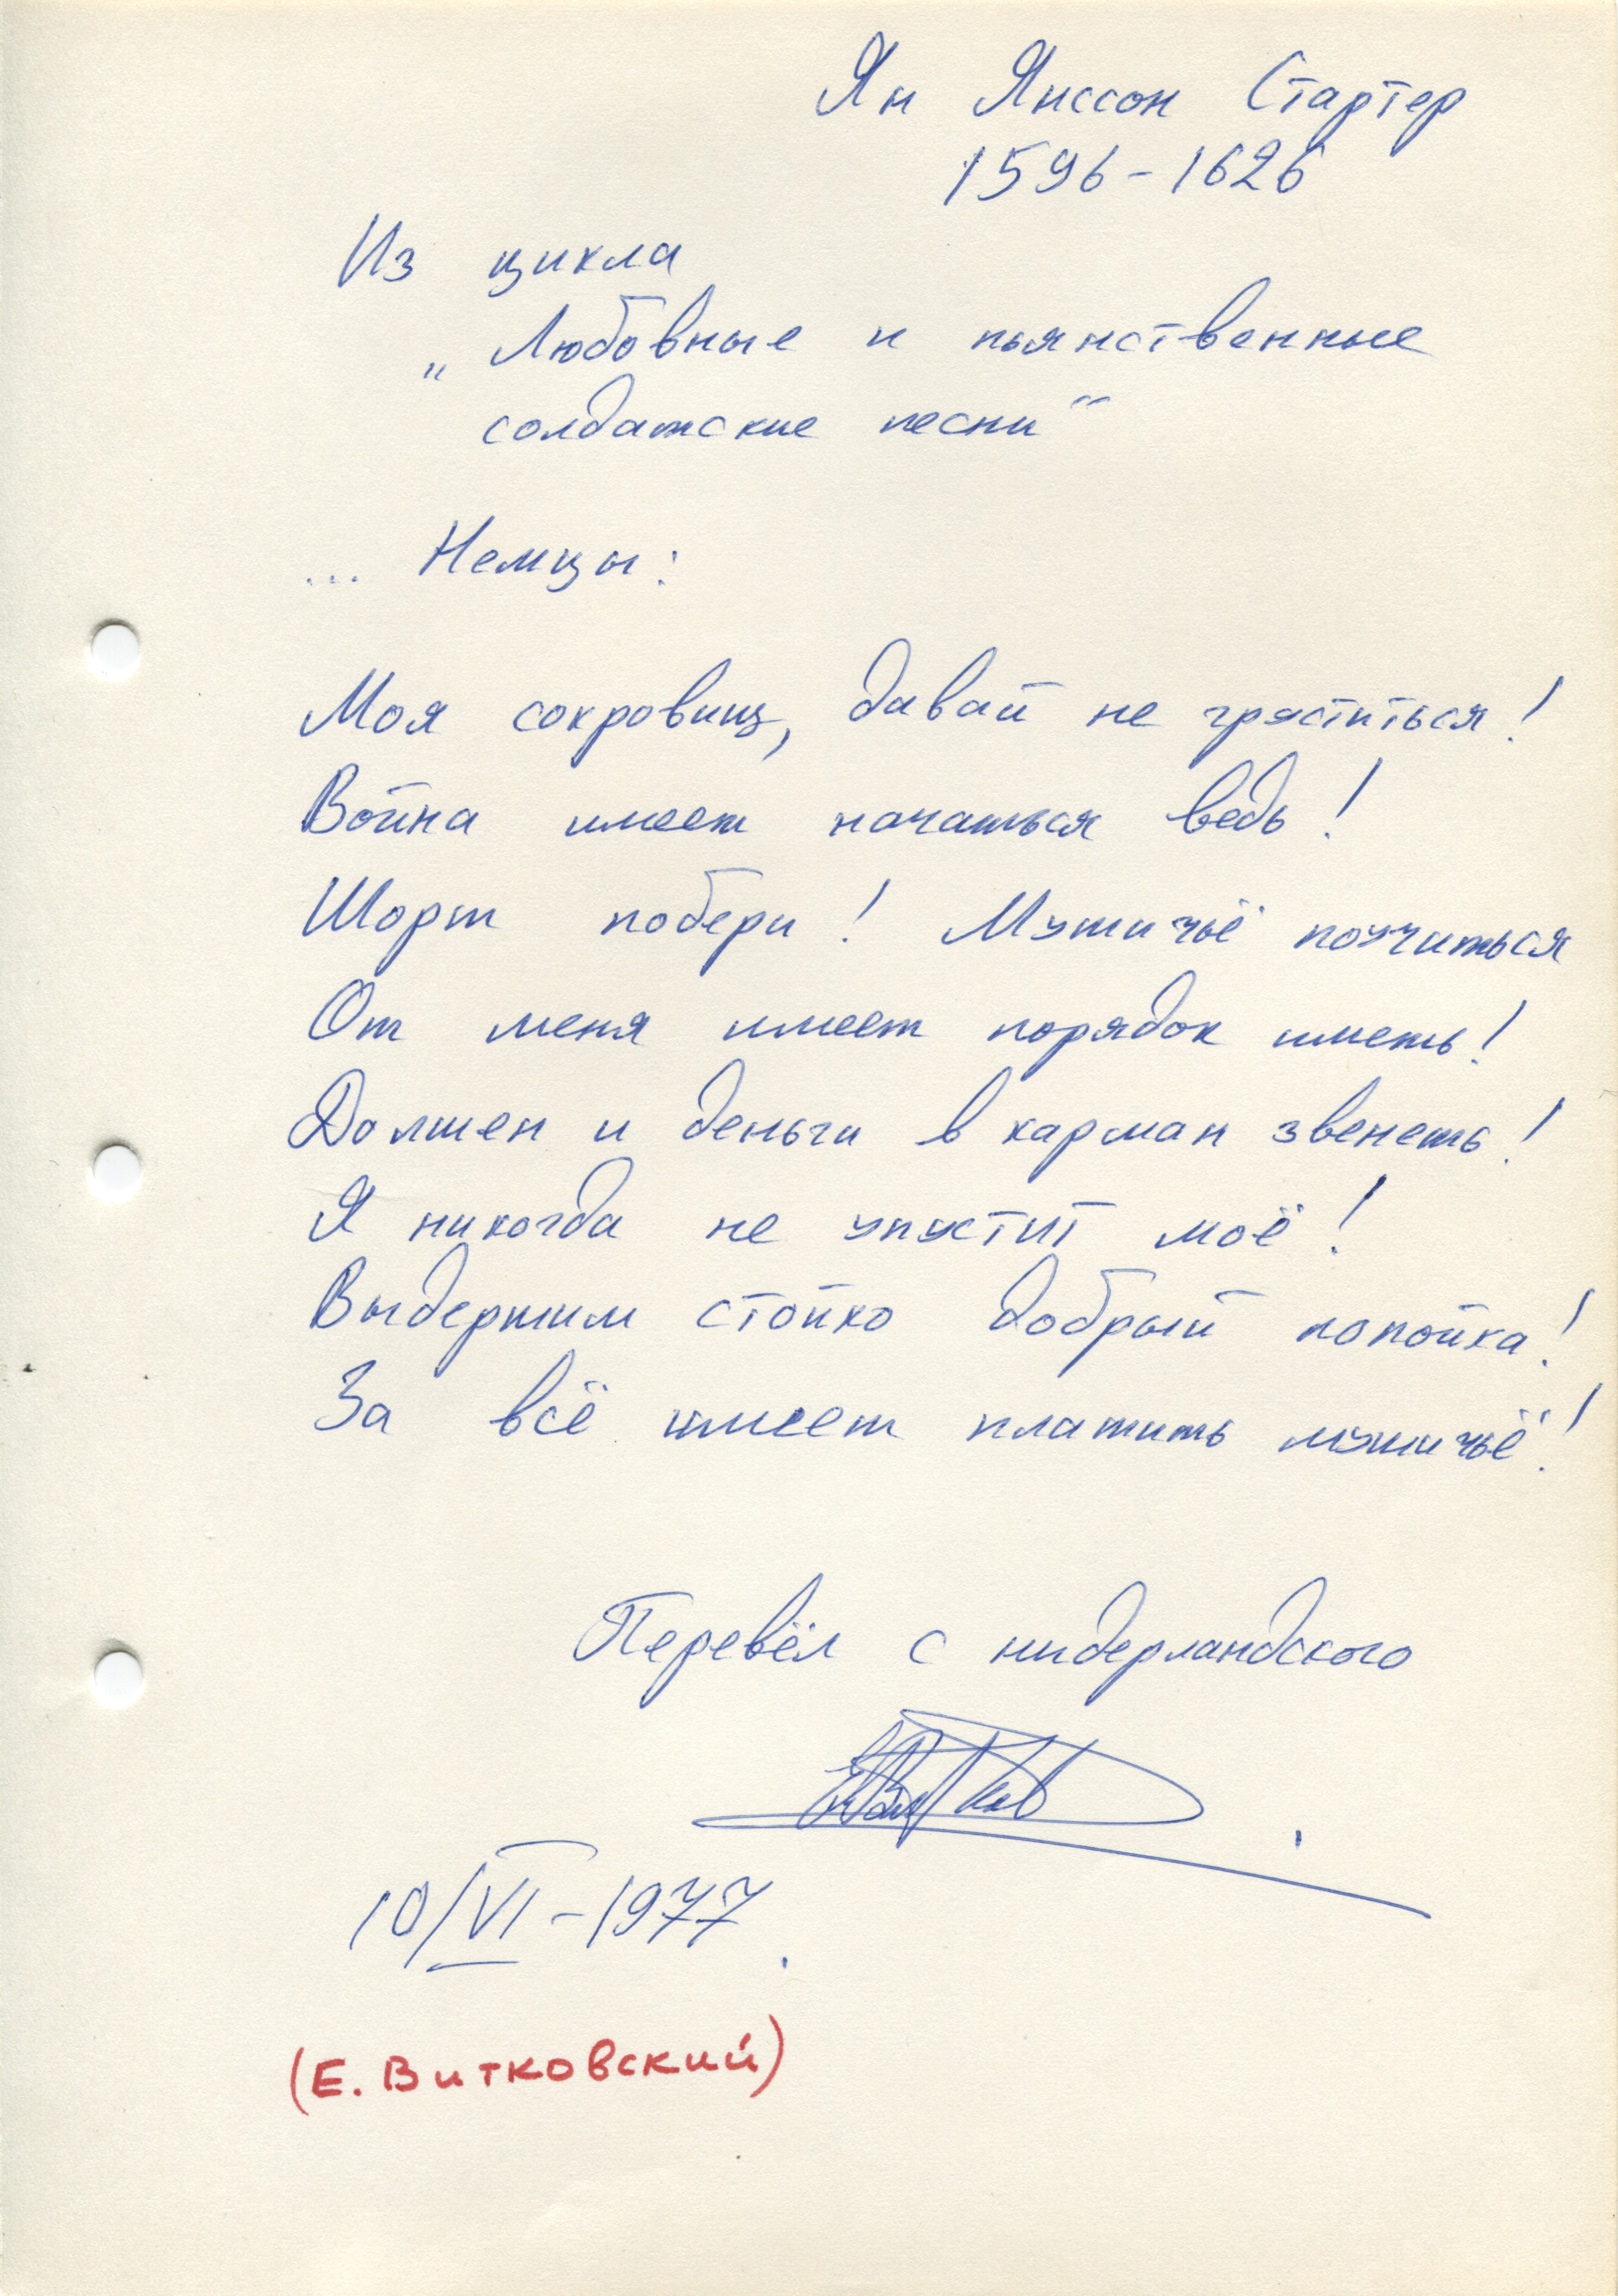 Ян Янссон Стартер
1596-1626
Из цикла
„Любовные и пьянственные
солдатские песни“
... Немцы:
Моя сокровищ, давай не груститься!
Война имеет начаться ведь!
Шорт побери! Мушичьё поучиться
От меня имеет порядок иметь!
Долшен и деньги в карман звенеть!
Я никогда не упустит моё!
Выдершим стойко добрый попойка!
За всё имеет платить мушичьё!
Перевёл с нидерландского
10/VI-1977.
(Е. Витковский)